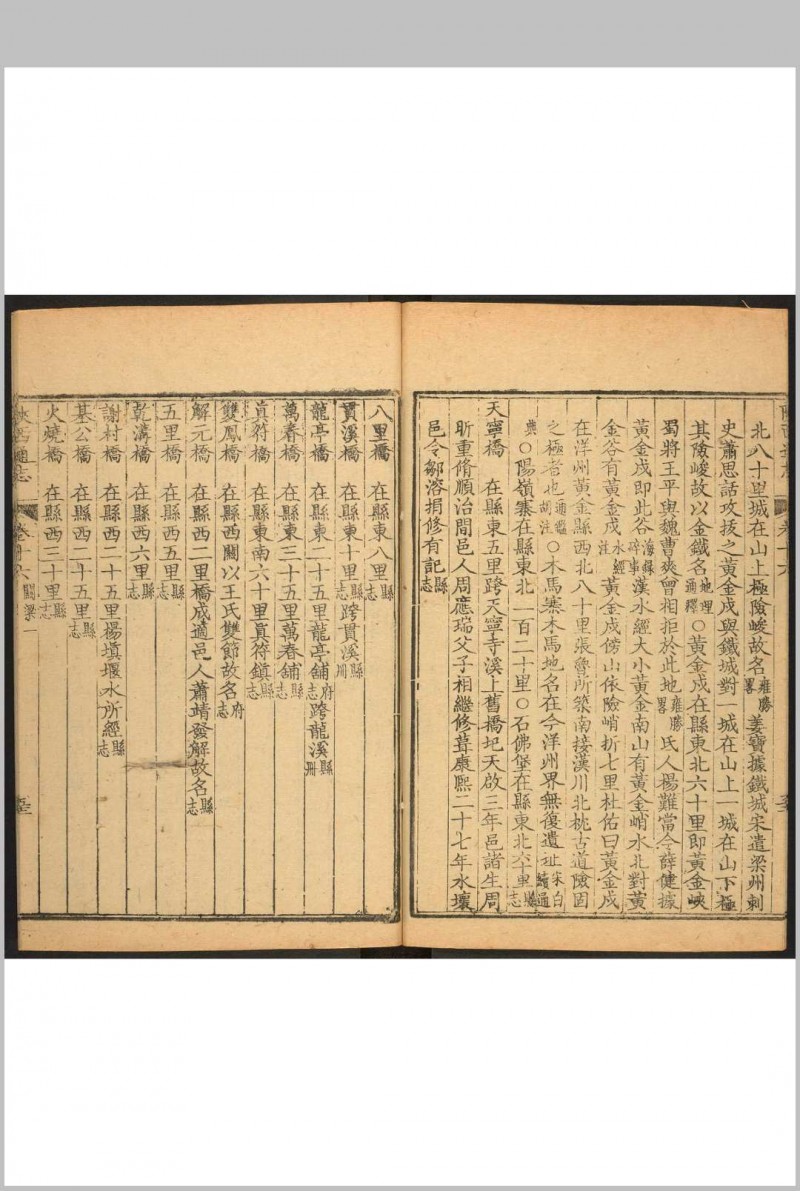 北八十里城在山上極險峻故名雍勝畧姜寶據鐵城宋遣梁州刺
史蕭思話攻拔之黃金戍與鐵城對一城在山上一城在山下極
其險峻故以金鐵名地理通釋○黃金戍在縣東北六十里即黃金峽
蜀將王平與魏曹爽曾相拒於此地雍勝畧氐人楊難當令薛健據
黃金戍即此谷海錄碎事漢水經大小黃金南山有黃金峭水北對黃
金谷有黃金戍水經注黃金戍傍山依險峭折七里杜佑曰黃金戍
在洋州黃金縣西北八十里張魯所築南接漢川北枕古道險固
之極者也通鑑胡注○木馬寨木馬地名在今洋州界無復遺址宋白續通
典○陽嶺寨在縣東北一百二十里○石佛堡在縣東北六十里縣志
天寧橋 在縣東五里跨天寧寺溪上舊橋圮天啟三年邑諸生周
昕重脩順治間邑人周應瑞父子相繼修葺康熙二十七年水壞
邑令鄒溶捐修有記縣志
八里橋 在縣東八里縣志
貫溪橋 在縣東十里縣志跨貫溪縣冊
龍亭橋 在縣東二十五里龍亭舖府志跨龍溪縣冊
萬春橋 在縣東三十五里萬春舖縣志
眞符橋 在縣東南六十里眞符鎮縣志
雙鳳橋 在縣西關以王氏雙節故名府志
解元橋 在縣西二里橋成適邑人蕭靖發解故名縣志
五里橋 在縣西五里縣志
乾溝橋 在縣西六里縣志
謝村橋 在縣西二十五里楊填堰水所經縣志
基公橋 在縣西二十五里縣志
火燒橋 在縣西三十里縣志
陝西通志 卷十六 關梁一